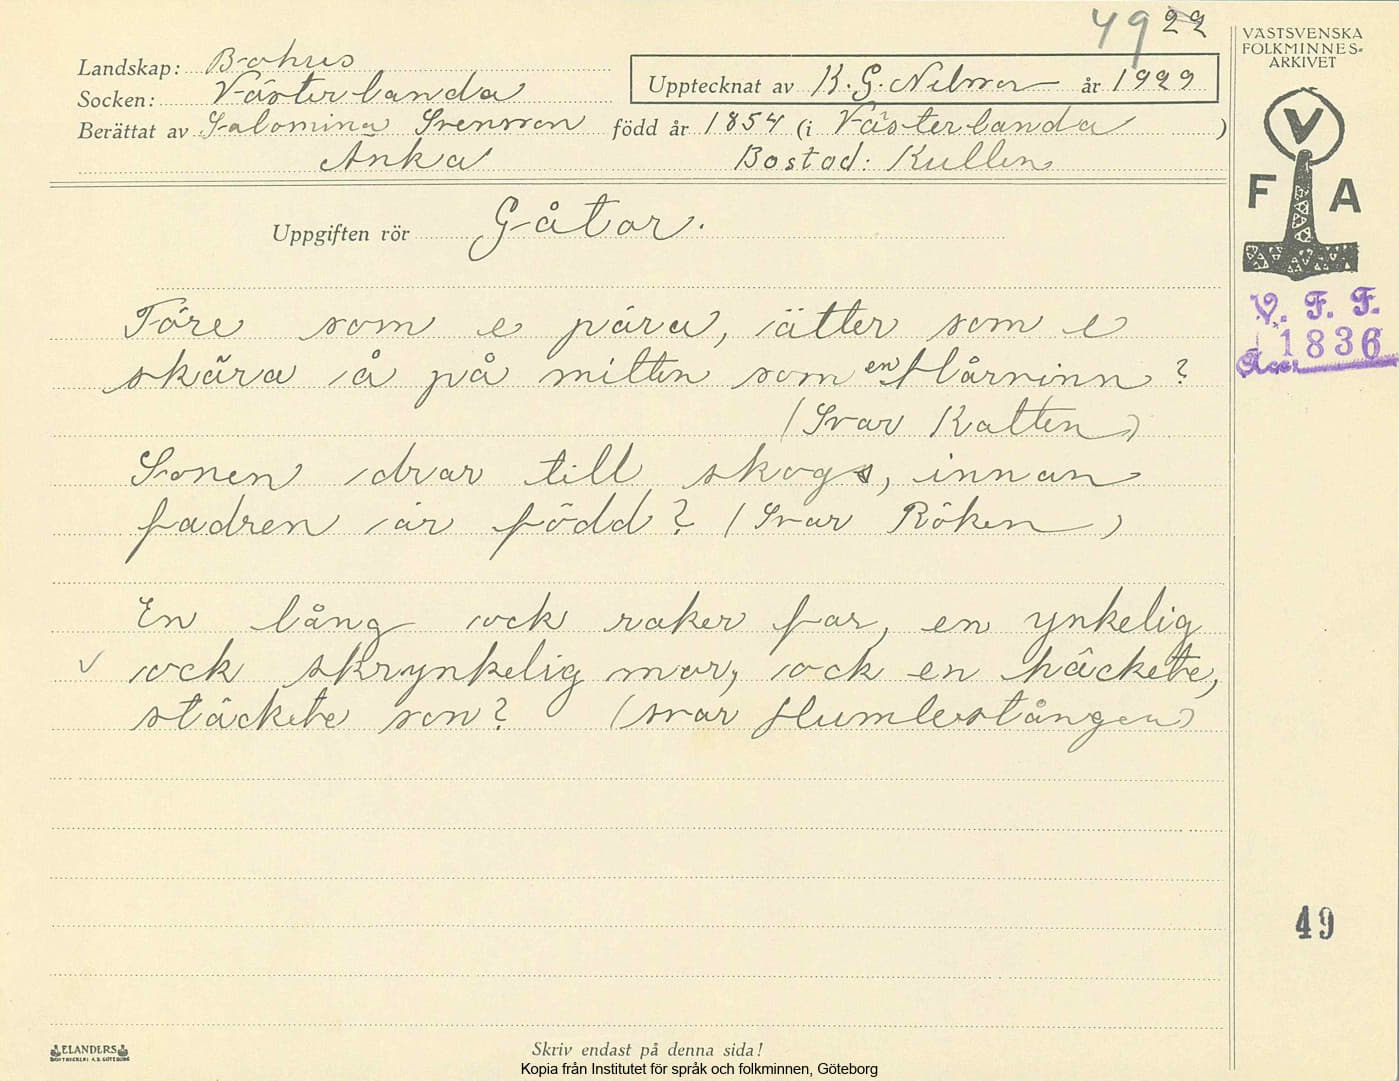 49 22
Landskap: Bohus
Socken: Västerlanda
Upptecknat av K. G. Nilsson år 1929
Berättat av Salomina Svensson född år 1854 (i Västerlanda )
Änka Bostad: Kullen
Uppgiften rör Gåtor.
Före som e pära, ätter som e
skära å på mitten som en Hårvinn?
(Svar Katten)
Sonen drar till skogs, innan
fadren är född? (Svar Röken)
En lång ock raker far, en ynkelig
✓ ock skrynkelig mor, ock en häckete,
stäckete son? (svar Humlestången)
VÄSTSVENSKA
FOLKMINNES-
ARKIVET
V
F A
V. F. F.
Acc. 1836
49
ELANDERS
BOKTRYCKERI A.B. GÖTEBORG
Skriv endast på denna sida!
Kopia från Institutet för språk och folkminnen, Göteborg